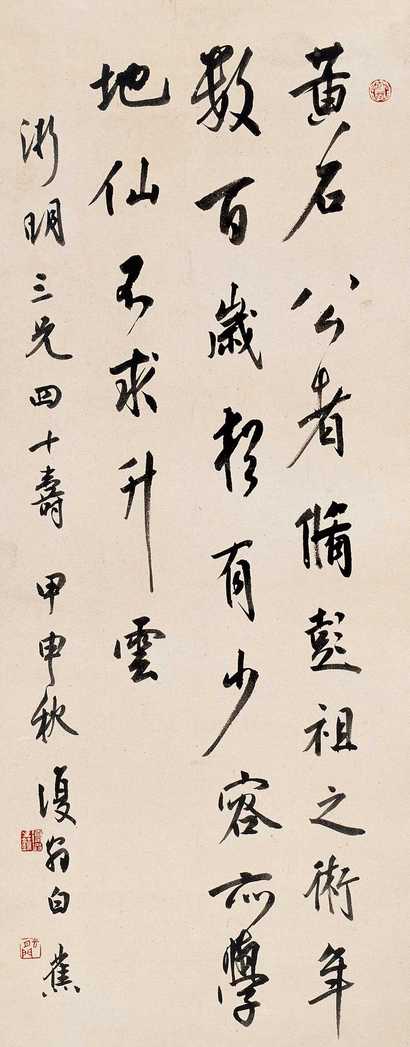 黃石公者脩彭祖之術年
數百歲猶有少容亦學
地仙不求升雲
漸明三兄四十壽 甲申秋 復翁白蕉